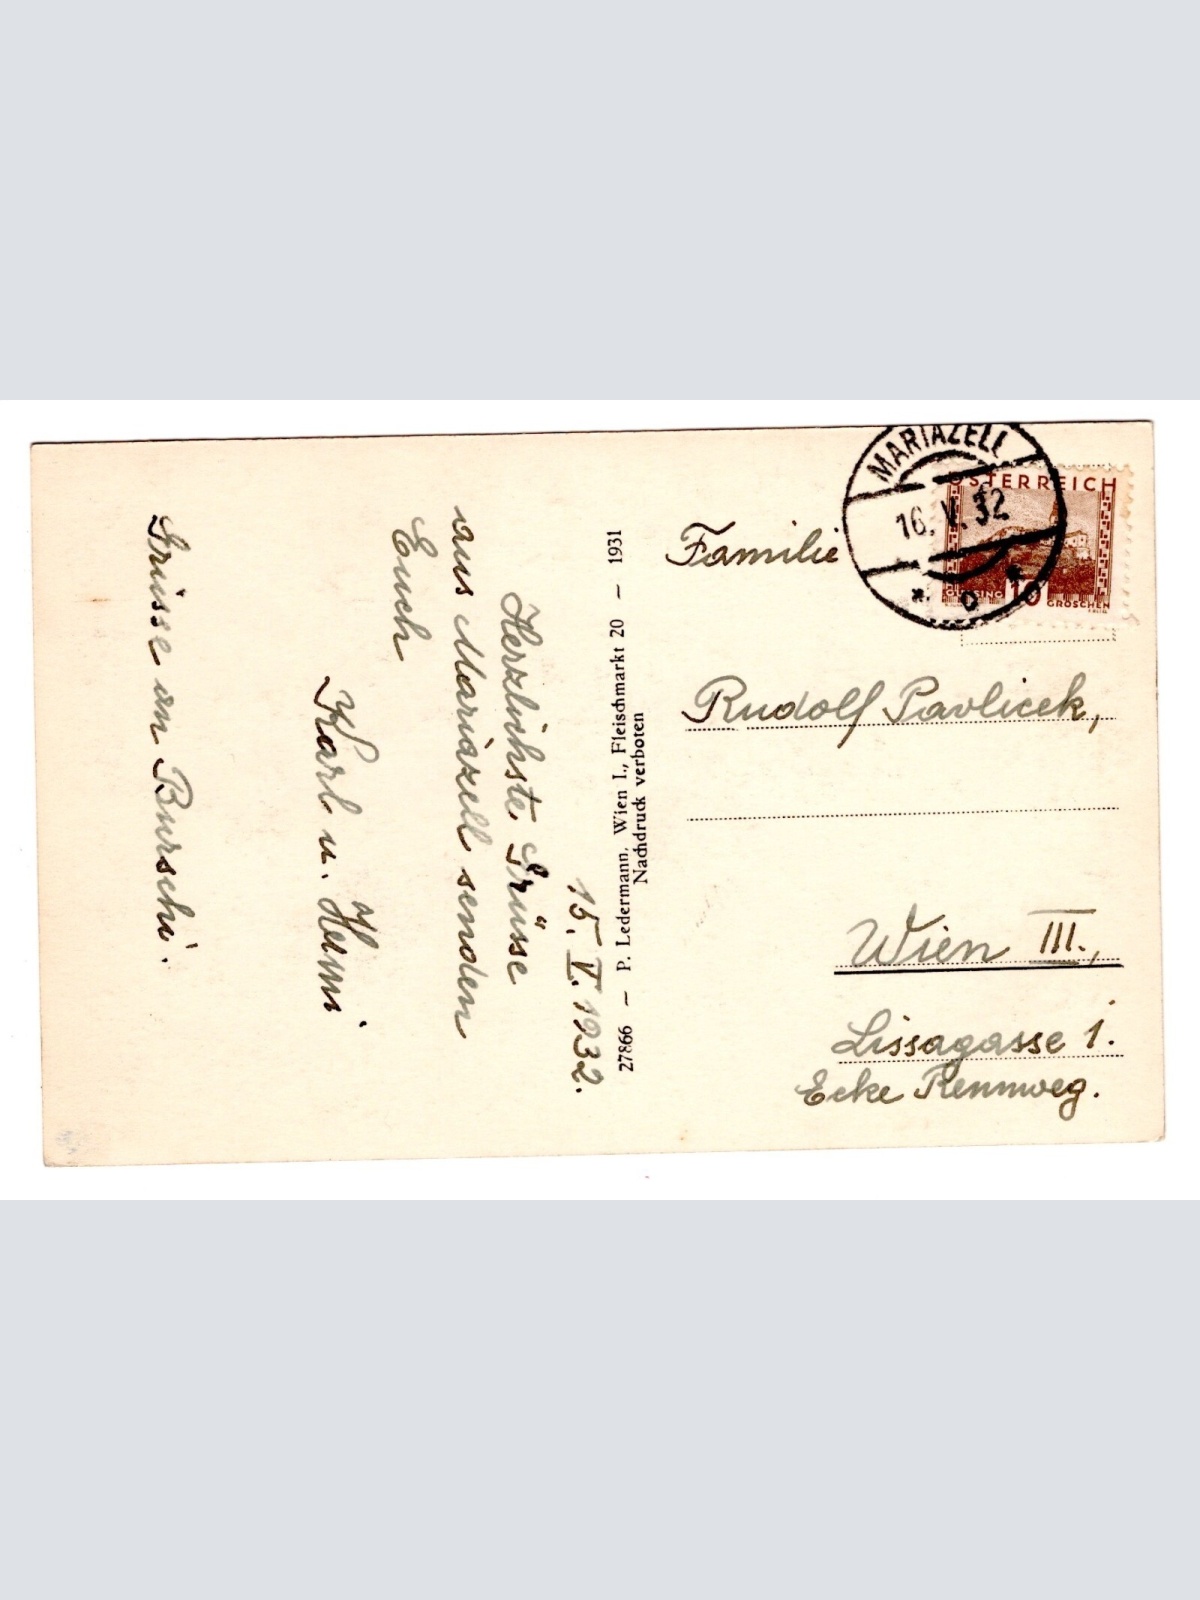 15. V. 1932.
Herzlichste Grüsse
aus Mariazell senden
Euch
Karl u.
Grüsse an Burschi.
27866 — P. Ledermann, Wien I., Fleischmarkt 20 — 1931
Nachdruck verboten
MARIAZELL
16. V. 32
ÖSTERREICH
GÜSSING 10 GROSCHEN
Familie
Rudolf Pavlicek,
Wien III.,
Lissagasse 1.
Ecke Rennweg.